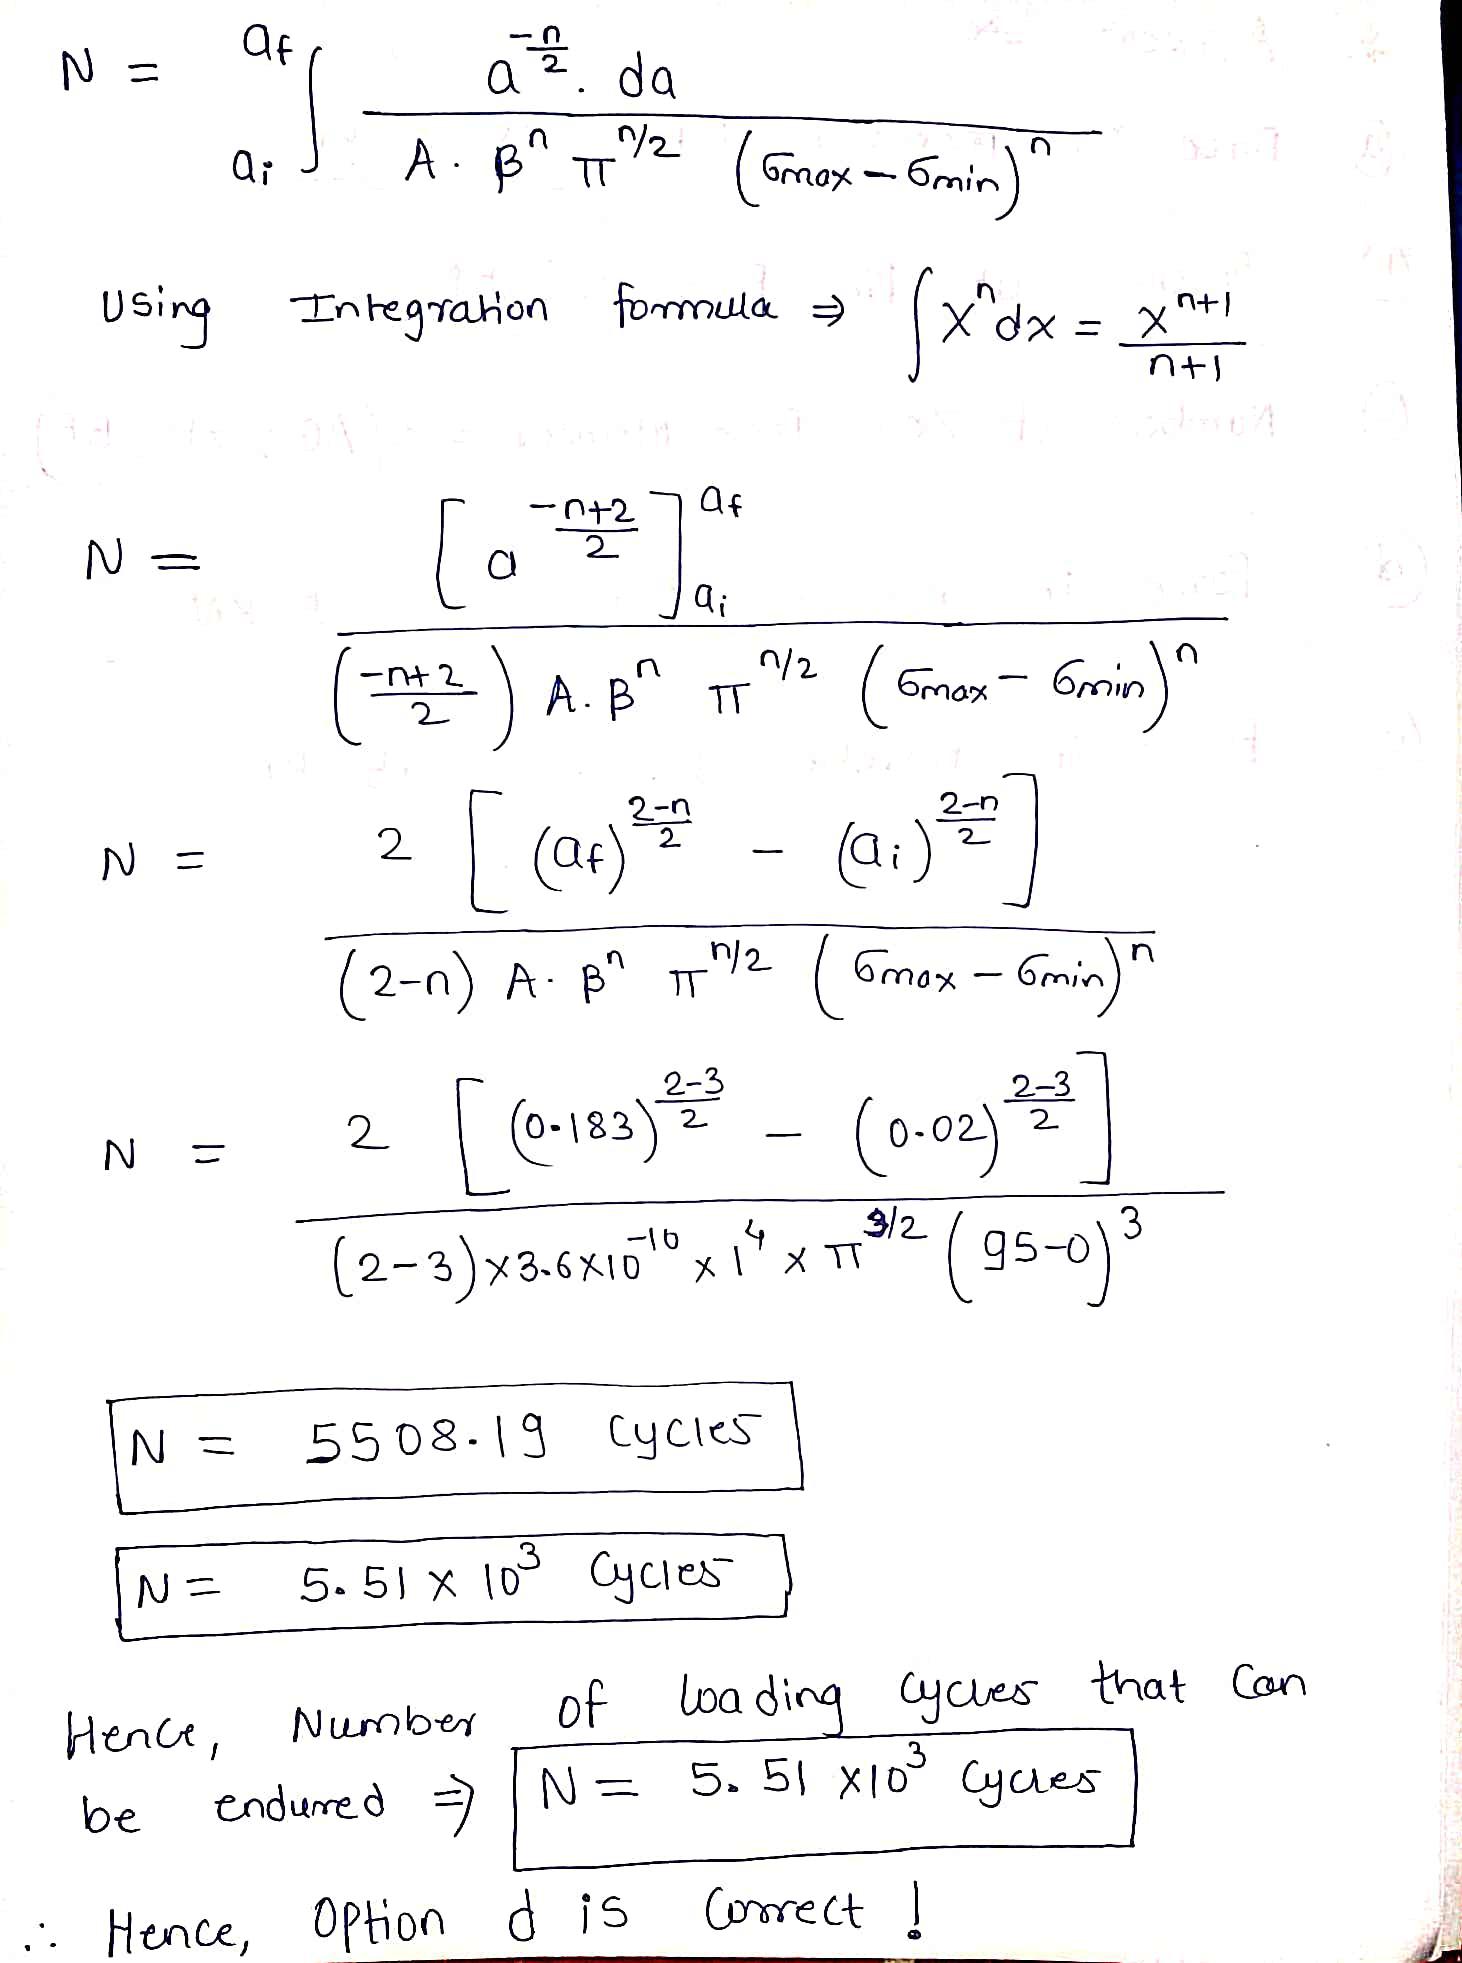 N = ∫_{ai}^{af} a^{-n/2} . da / A . β^n π^{n/2} (σmax - σmin)^n
Using Integration formula ⇒ ∫x^n dx = x^{n+1} / n+1
N = [a^{-n+2/2}]_{ai}^{af} / (-n+2/2) A . β^n π^{n/2} (σmax - σmin)^n
N = 2 [(af)^{2-n/2} - (ai)^{2-n/2}] / (2-n) A . β^n π^{n/2} (σmax - σmin)^n
N = 2 [(0.183)^{2-3/2} - (0.02)^{2-3/2}] / (2-3) x 3.6 x 10^{-10} x 1^4 x π^{3/2} (95-0)^3
N = 5508.19 Cycles
N = 5.51 x 10^3 Cycles
Hence, Number of loading cycles that can
be endured ⇒ N = 5.51 x 10^3 Cycles
∴ Hence, Option d is correct !